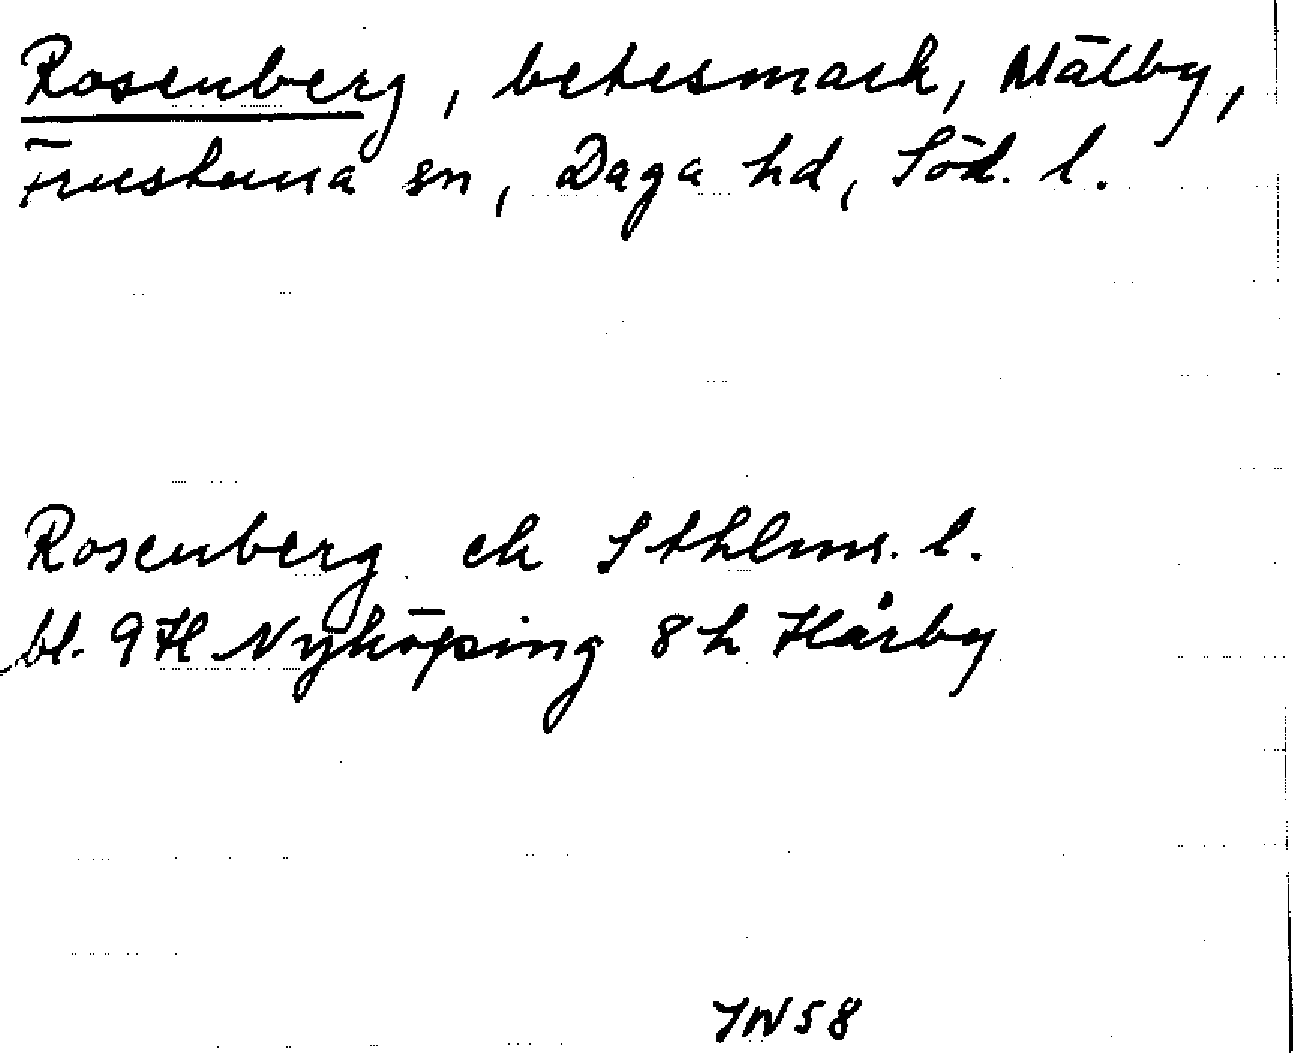 Rosenberg, betesmark, Mälby,
Frustuna sn, Daga hd, Söd. l.
Rosenberg ek Sthlms. l.
bl. 9H Nyköping 8h Hårby
IN 58